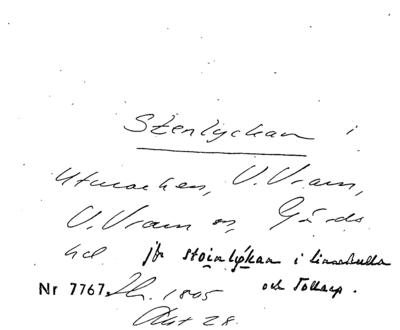 Stenlyckan i
Utmarken, V. Vram,
V. Vram sn, Gärds
hd jfr stoinlýkan i Linnarhulla
och Tollarp.
Nr 7767. 1805
Akt 28.